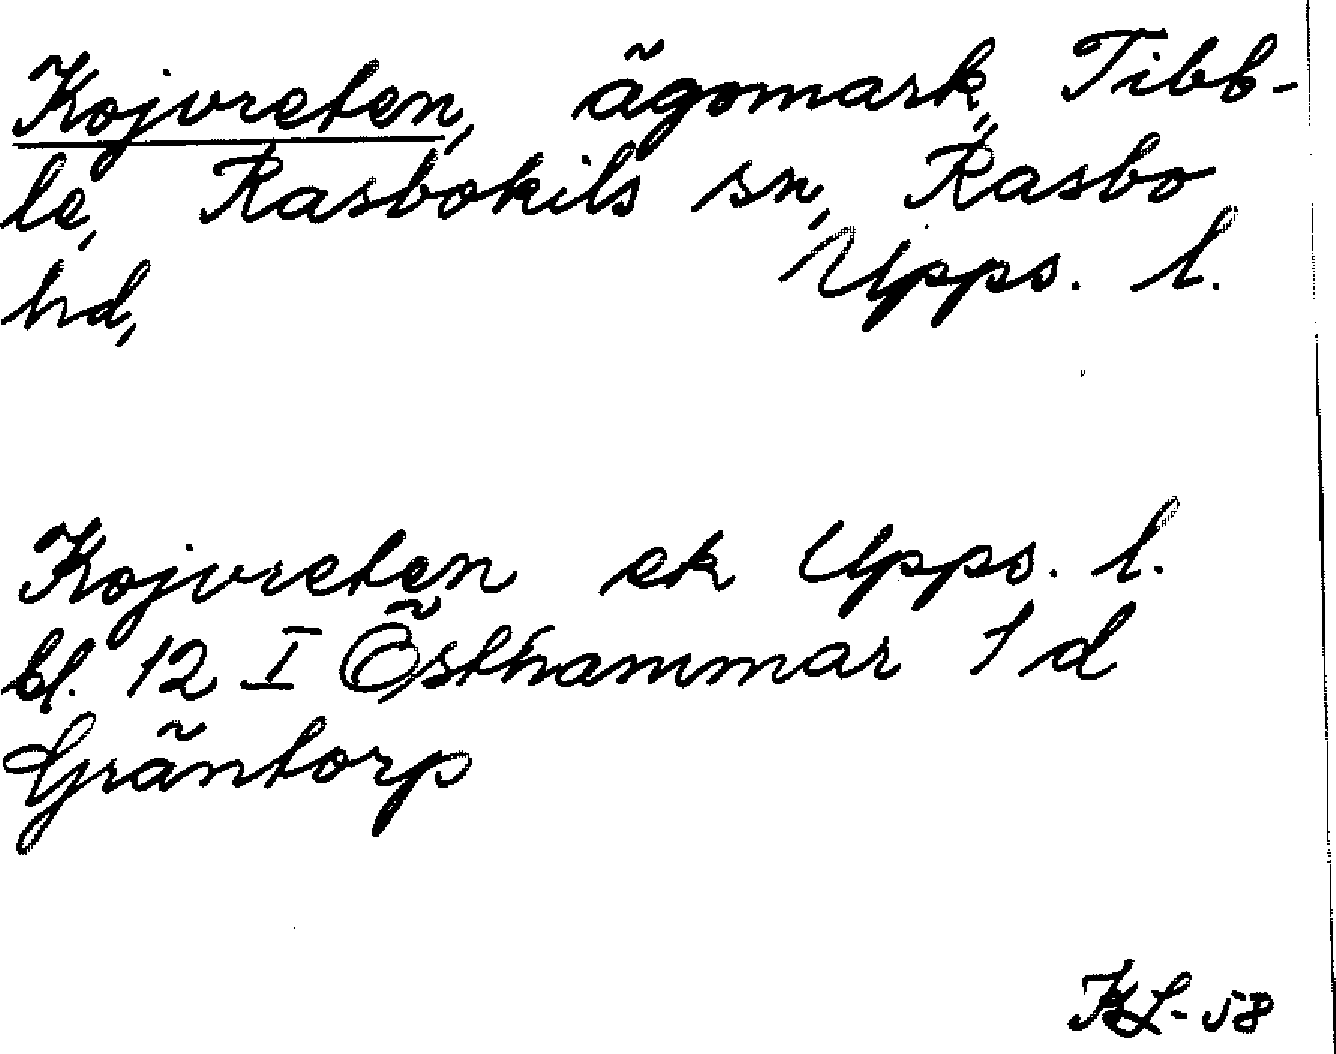 Kojvreten, ägomark, Tibb-
le, Rasbokils sn, Rasbo
hd, Upps. l.
Kojvreten ek Upps. l.
bl. 12 I Östhammar 1 d
Gräntorp
KL-58